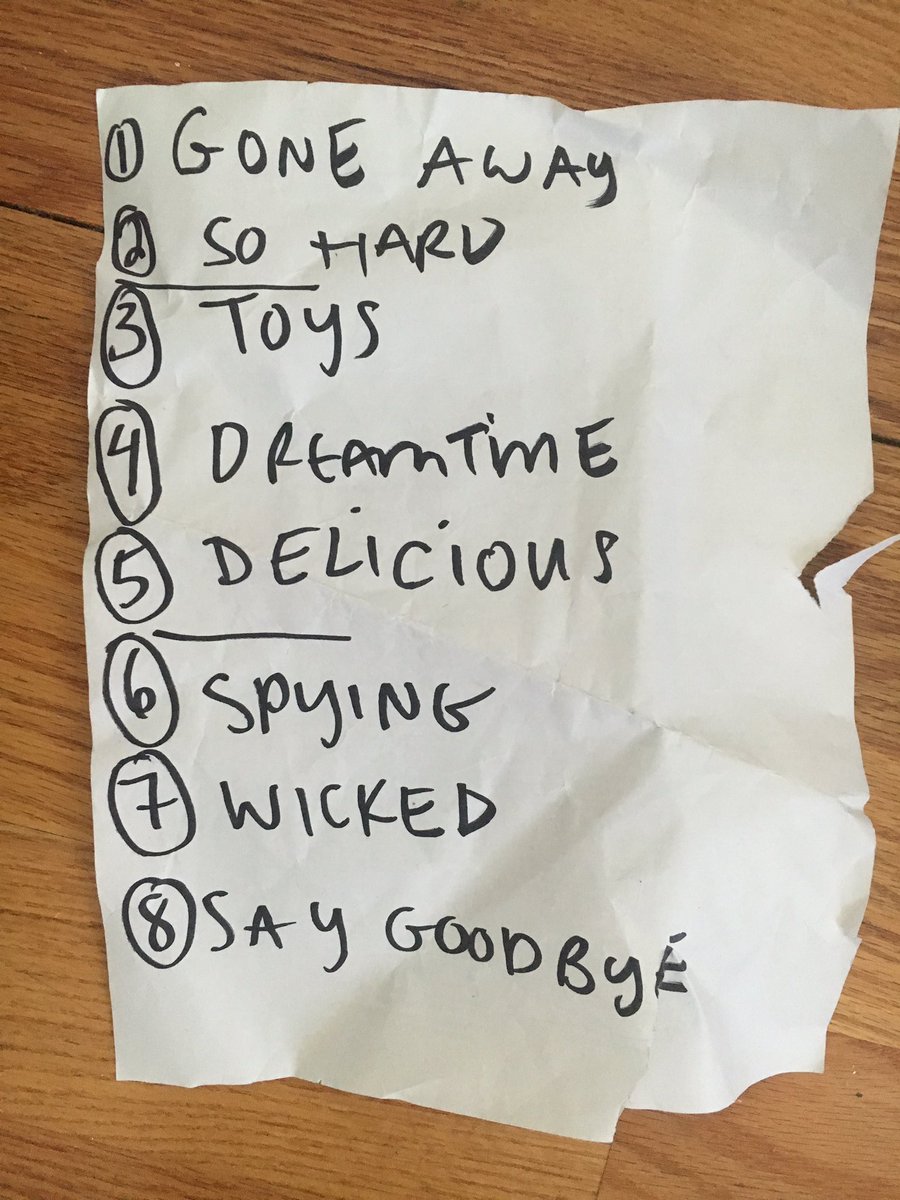 ① GONE AWAY
② SO HARD
③ TOYS
④ DREAMTIME
⑤ DELICIOUS
⑥ SPYING
⑦ WICKED
⑧ SAY GOODBYE